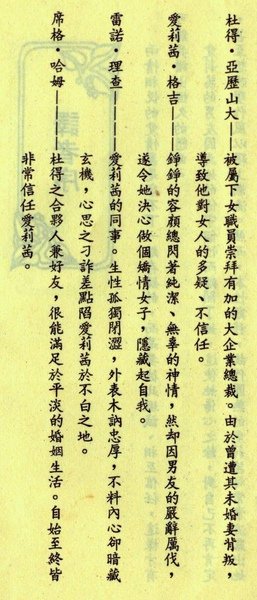 杜得・亞歷山大——被屬下女職員崇拜有加的大企業總裁。由於曾遭其未婚妻背叛，
導致他對女人的多疑、不信任。
愛莉茜・格吉———錚錚的容顏總閃著純潔、無辜的神情，然却因男友的嚴辭厲伐，
遂令她決心做個矯情女子，隱藏起自我。
雷諾・理查————愛莉茜的同事。生性孤獨閉澀，外表木訥忠厚，不料內心卻暗藏
玄機，心思之刁詐差點陷愛莉茜於不白之地。
席格・哈姆————杜得之合夥人兼好友，很能滿足於平淡的婚姻生活。自始至終皆
非常信任愛莉茜。